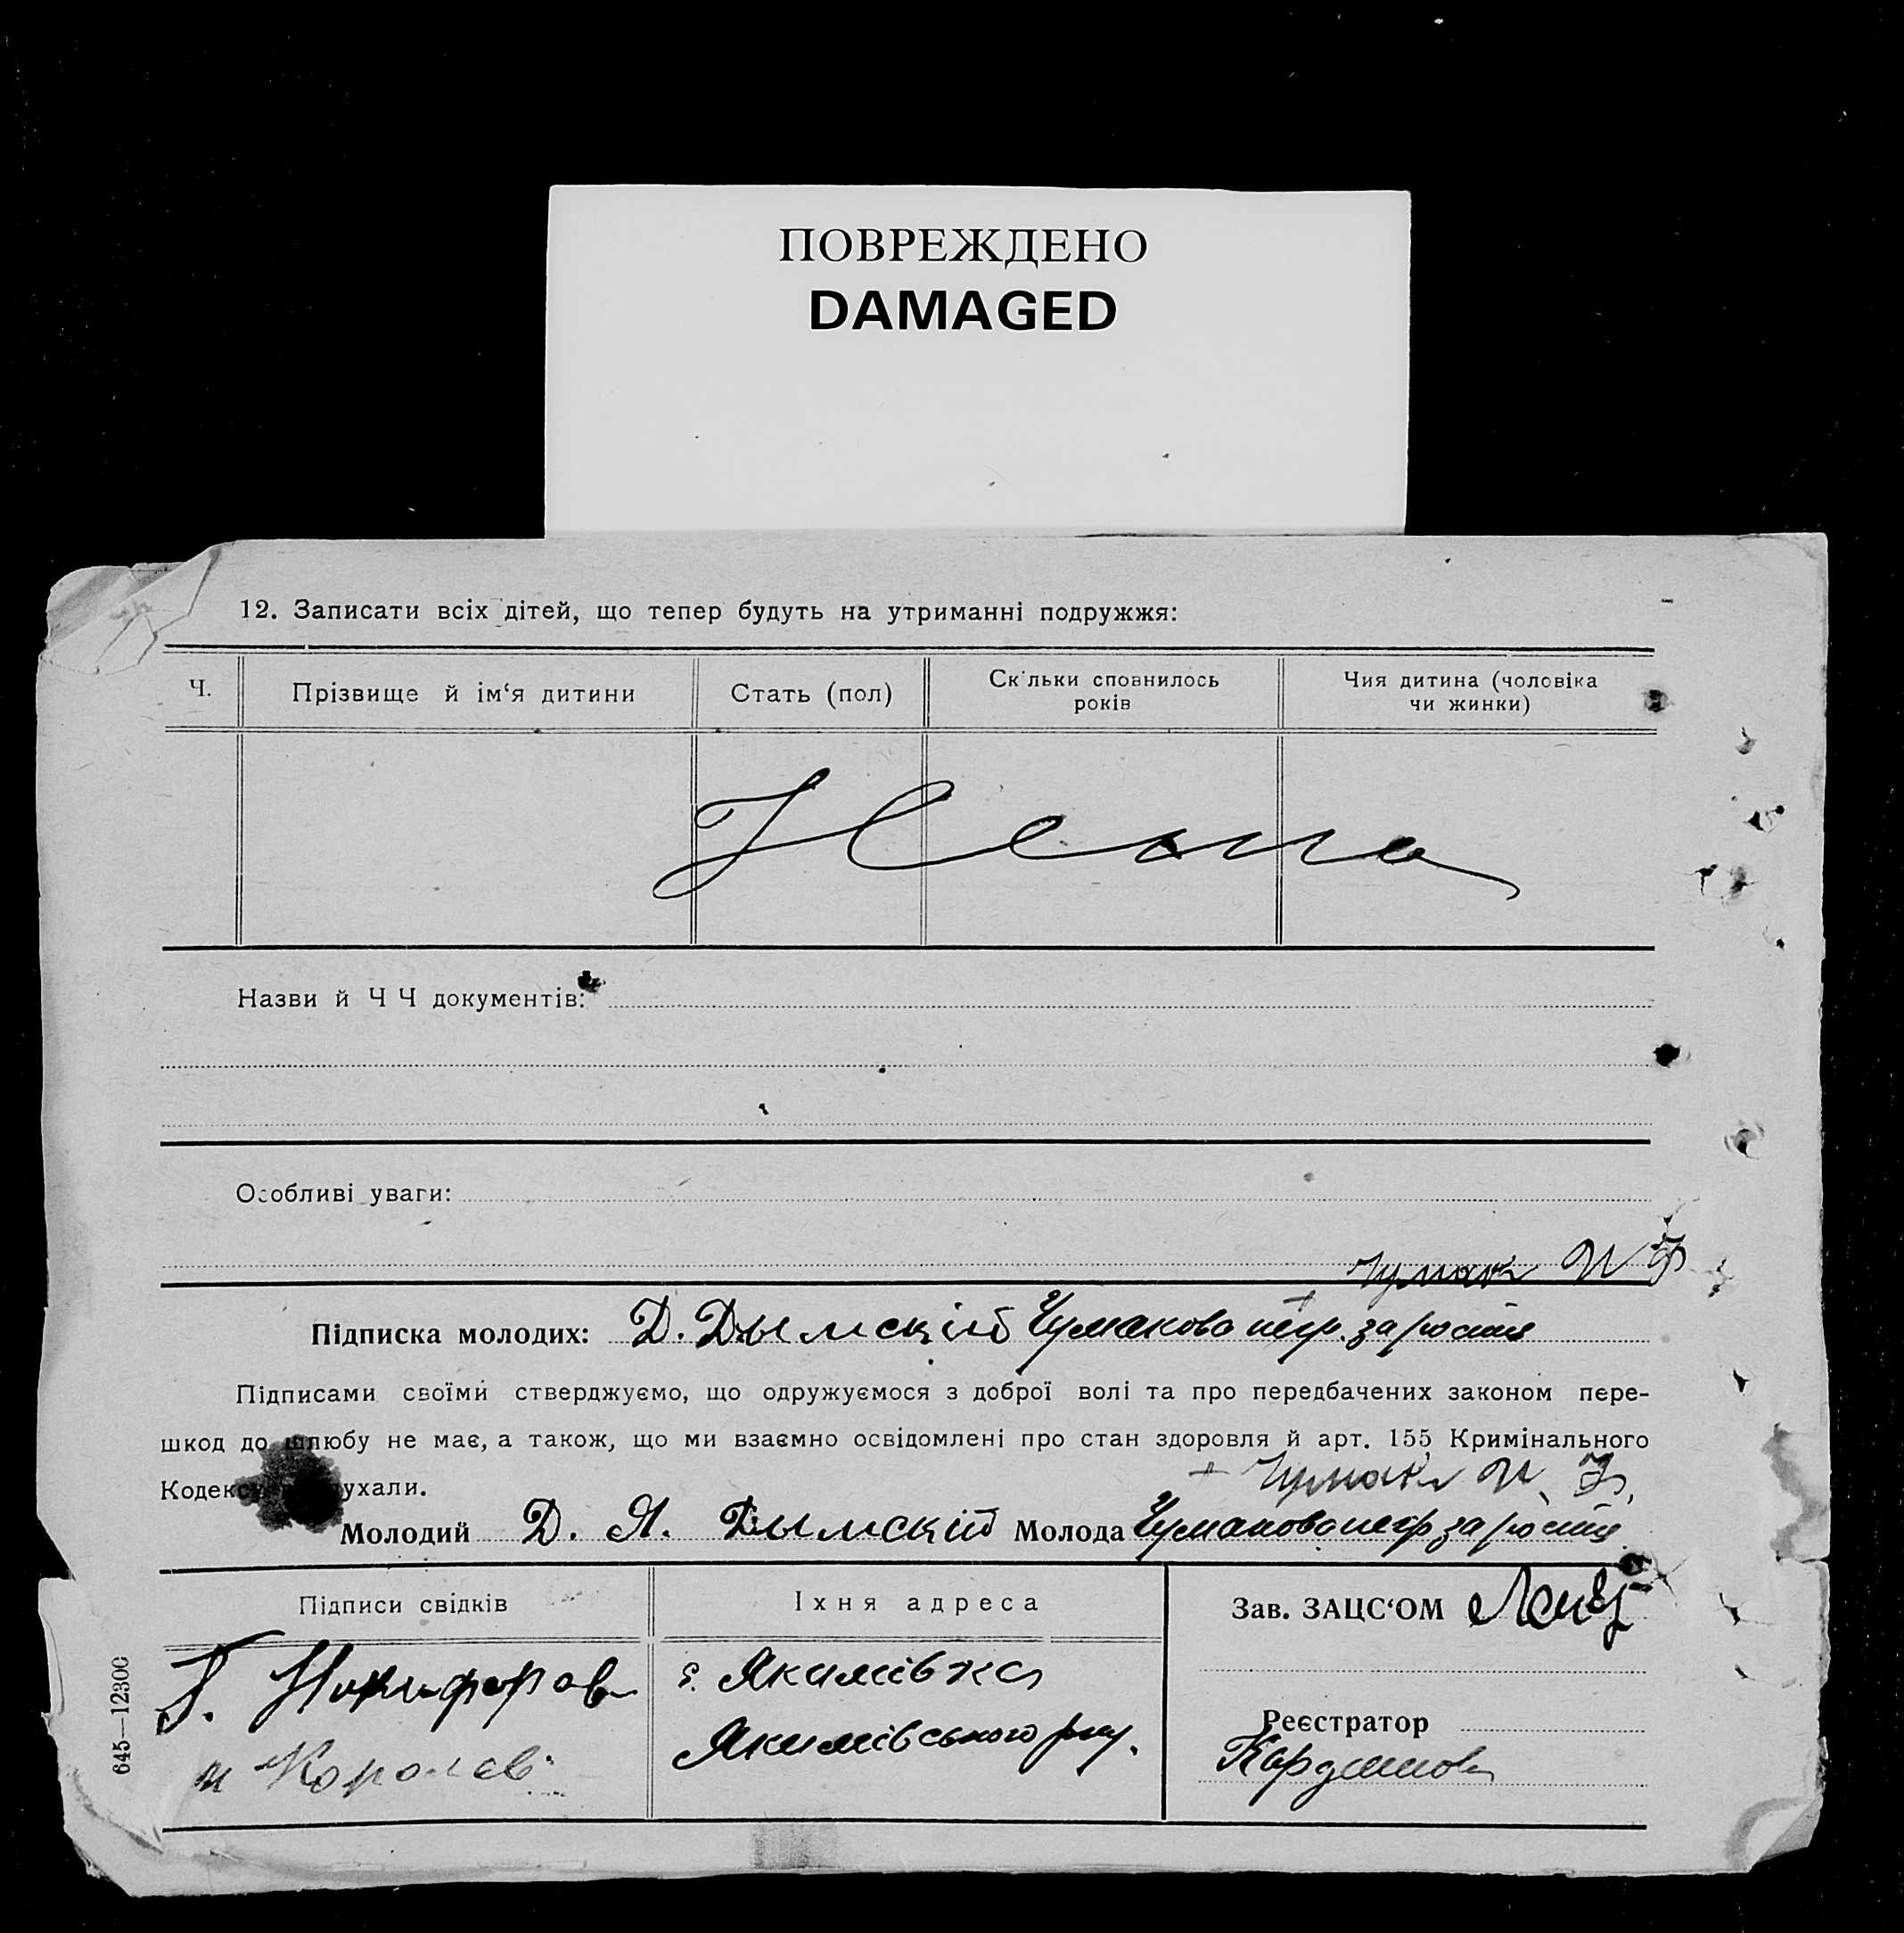 ПОВРЕЖДЕНО
DAMAGED
12. Записати всіх дітей, що тепер будуть на утриманні подружжя:
Ч.
Прізвище й ім‘я дитини
Стать (пол)
Скільки сповнилось
років
Чия дитина (чоловіка
чи жинки)
Нема
Назви й Ч Ч документів:
Особливі уваги:
Чумак
Підписка молодих: Д. Дымскій Чумакова негр. за
Підписами своїми стверджуємо, що одружуємося з доброї волі та про передбачених законом пере-
шкод до шлюбу не має, а також, що ми взаємно освідомлені про стан здоровля й арт. 155 Кримінального
Кодексу ухали.
+ Чумак
Молодий Д. Я. Дымскій Молода Чумакова негр за
Підписи свідків
Їхня адреса
Зав. ЗАЦС‘ОМ
Никифоров
с. Якимівка
Якимівського рну.
Королев
Реєстратор
645—12300